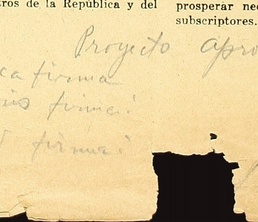 tros de la República y del
prosperar nec
subscriptores.
Proyecto apro
ca firma
firma!
firma!